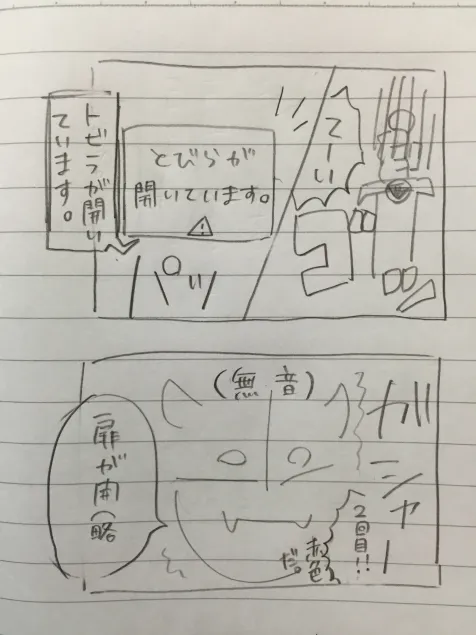 てーい
とびらが
開いています。
トビラが開い
ています。
ガシャー
2回目!!
(無音)
赤色
だ。
扉が開(略